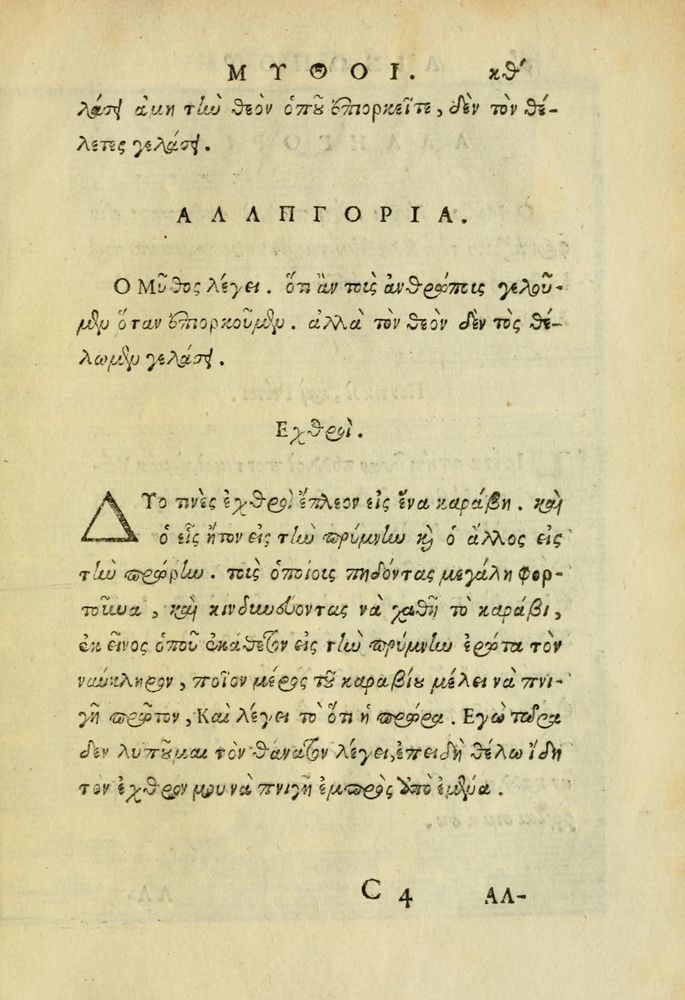 ΜΥΘΟΙ. κθʹ
λάσῃ ἀμὴ τὼ θεὸν ὁποῦ ἐπιορκεῖτε, δὲν τὸν θέ-
λετες γελάσῃ.
ΑΛΛΗΓΟΡΙΑ.
Ο Μῦθος λέγει. ὅτι ἂν τοὶς ἀνθρώποις γελοῦ-
μεν ὅταν ἐπιορκοῦμεν. ἀλλὰ τὸν θεὸν δὲν τὸς θέ-
λωμεν γελάσῃ.
Εχθροὶ.
ΔΥο τινὲς ἐχθροὶ ἔπλεον εἰς ἕνα καράβη. καὶ
ὁ εἷς ἦτον εἰς τὴν πρύμνην καὶ ὁ ἄλλος εἰς
τὴν πρῴρην. τοὶς ὁποίοις πηδόντας μεγάλη φορ-
τοῦνα, καὶ κινδυνεύοντας νὰ χαθῆ τὸ καράβι,
ἐκ εῖνος ὁποῦ ἐκάθετον εἰς τὴν πρύμνην ἐρώτα τὸν
ναύκληρον, ποῖον μέρος τοῦ καραβίου μέλει νὰ πνι-
γῆ πρῶτον, Καὶ λέγει τὸ ὅτι ἡ πρῴρα. Εγὼ τώρα
δεν λυποῦμαι τὸν θάνατον λέγει, ἐπειδὴ θέλω ἴδῃ
τὸν ἐχθρὸν μου νὰ πνιγῆ ἐμπρὸς ὑπὸ ἐμένα.
C 4 ΑΛ-